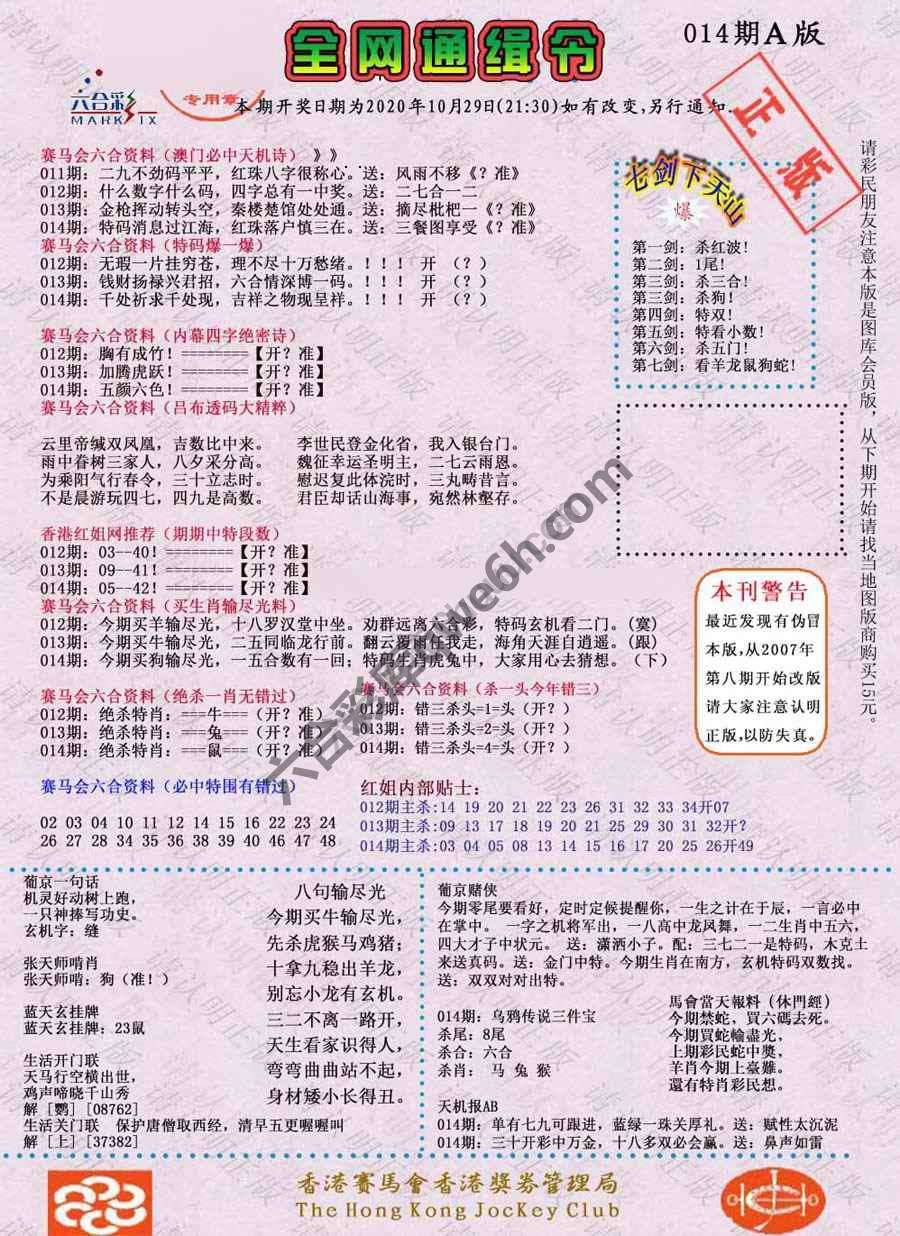 全网通缉令
014期A版
六合彩
MARK SIX
专用章
本期开奖日期为2020年10月29日(21:30)如有改变,另行通知.
正版
赛马会六合资料（澳门必中天机诗）》》
011期：二九不劲码平平，红珠八字很称心。送：风雨不移《？准》
012期：什么数字什么码，四字总有一中奖。送：二七合一二
013期：金枪挥动转头空，秦楼楚馆处处通。送：摘尽枇杷一《？准》
014期：特码消息过江海，红珠落户慎三在。送：三餐图享受《？准》
赛马会六合资料（特码爆一爆）
012期：无瑕一片挂穷苍，理不尽十万愁绪。！！！ 开 （？）
013期：钱财扬禄兴君招，六合情深博一码。！！！ 开 （？）
014期：千处祈求千处现，吉祥之物现呈祥。！！！ 开 （？）
赛马会六合资料（内幕四字绝密诗）
012期：胸有成竹！========【开？准】
013期：加腾虎跃！========【开？准】
014期：五颜六色！========【开？准】
赛马会六合资料（吕布透码大精粹）
云里帝缄双凤凰，吉数比中来。 李世民登金化省，我入银台门。
雨中眷树三家人，八夕采分高。 魏征幸运圣明主，二七云雨恩。
为乘阳气行春令，三十立志时。 慰迟复此体浣时，三丸畴昔言。
不是晨游玩四七，四九是高数。 君臣却话山海事，宛然林壑存。
香港红姐网推荐（期期中特段数）
012期：03--40！========【开？准】
013期：09--41！========【开？准】
014期：05--42！========【开？准】
赛马会六合资料（买生肖输尽光料）
012期：今期买羊输尽光，十八罗汉堂中坐。劝群远离六合彩，特码玄机看二门。（寞）
013期：今期买牛输尽光，二五同临龙行前。翻云覆雨任我走，海角天涯自逍遥。（跟）
014期：今期买狗输尽光，一五合数有一回；特码生肖虎兔中，大家用心去猜想。（下）
赛马会六合资料（绝杀一肖无错过）
012期：绝杀特肖：===牛===（开？准）
013期：绝杀特肖：===兔===（开？准）
014期：绝杀特肖：===鼠===（开？准）
赛马会六合资料（杀一头今年错三）
012期：错三杀头=1=头（开？）
013期：错三杀头=2=头（开？）
014期：错三杀头=4=头（开？）
赛马会六合资料（必中特围有错过）
02 03 04 10 11 12 14 15 16 22 23 24
26 27 28 34 35 36 38 39 40 46 47 48
红姐内部贴士：
012期主杀:14 19 20 21 22 23 26 31 32 33 34开07
013期主杀:09 13 17 18 19 20 21 25 29 30 31 32开？
014期主杀:03 04 05 08 13 14 15 16 17 20 25 26开49
七剑下天山
爆
第一剑：杀红波！
第二剑：1尾！
第三剑：杀三合！
第三剑：杀狗！
第四剑：特双！
第五剑：特看小数！
第六剑：杀五门！
第七剑：看羊龙鼠狗蛇！
请彩民朋友注意本版是图库会员版，从下期开始请找当地图版商购买15元。
本刊警告
最近发现有伪冒
本版,从2007年
第八期开始改版
请大家注意认明
正版,以防失真。
六合彩库qive6h.com
葡京一句话
机灵好动树上跑，
一只神捧写功史。
玄机字：缝
张天师啃肖
张天师啃：狗（准！）
蓝天玄挂牌
蓝天玄挂牌：23鼠
生活开门联
天马行空横出世，
鸡声啼晓千山秀
解［鹦］[08762]
生活关门联 保护唐僧取西经，清早五更喔喔叫
解［上］[37382]
八句输尽光
今期买牛输尽光，
先杀虎猴马鸡猪；
十拿九稳出羊龙，
别忘小龙有玄机。
三二不离一路开，
天生看家识得人，
弯弯曲曲站不起，
身材矮小长得丑。
葡京赌侠
今期零尾要看好，定时定候提醒你，一生之计在于辰，一言必中
在掌中。 一字之机将军出，一八高中龙凤舞，一二生肖中五六，
四大才子中状元。 送：潇洒小子。配：三七二一是特码，木克土
来送真码。送：金门中特。今期生肖在南方，玄机特码双数找。
送：双双对对出特。
014期：乌鸦传说三件宝
杀尾：8尾
杀合：六合
杀肖：马 兔 猴
馬會當天報料（休門經）
今期禁蛇，買六碼去死。
今期買蛇輸盡光，
上期彩民蛇中獎，
羊肖今期上臺難。
還有特肖彩民想。
天机报AB
014期：单有七九可跟进，蓝绿一珠关厚礼。送：赋性太沉泥
014期：三十开彩中万金，十八多双必会赢。送：鼻声如雷
香港賽馬會香港獎券管理局
The Hong Kong JocKey Club